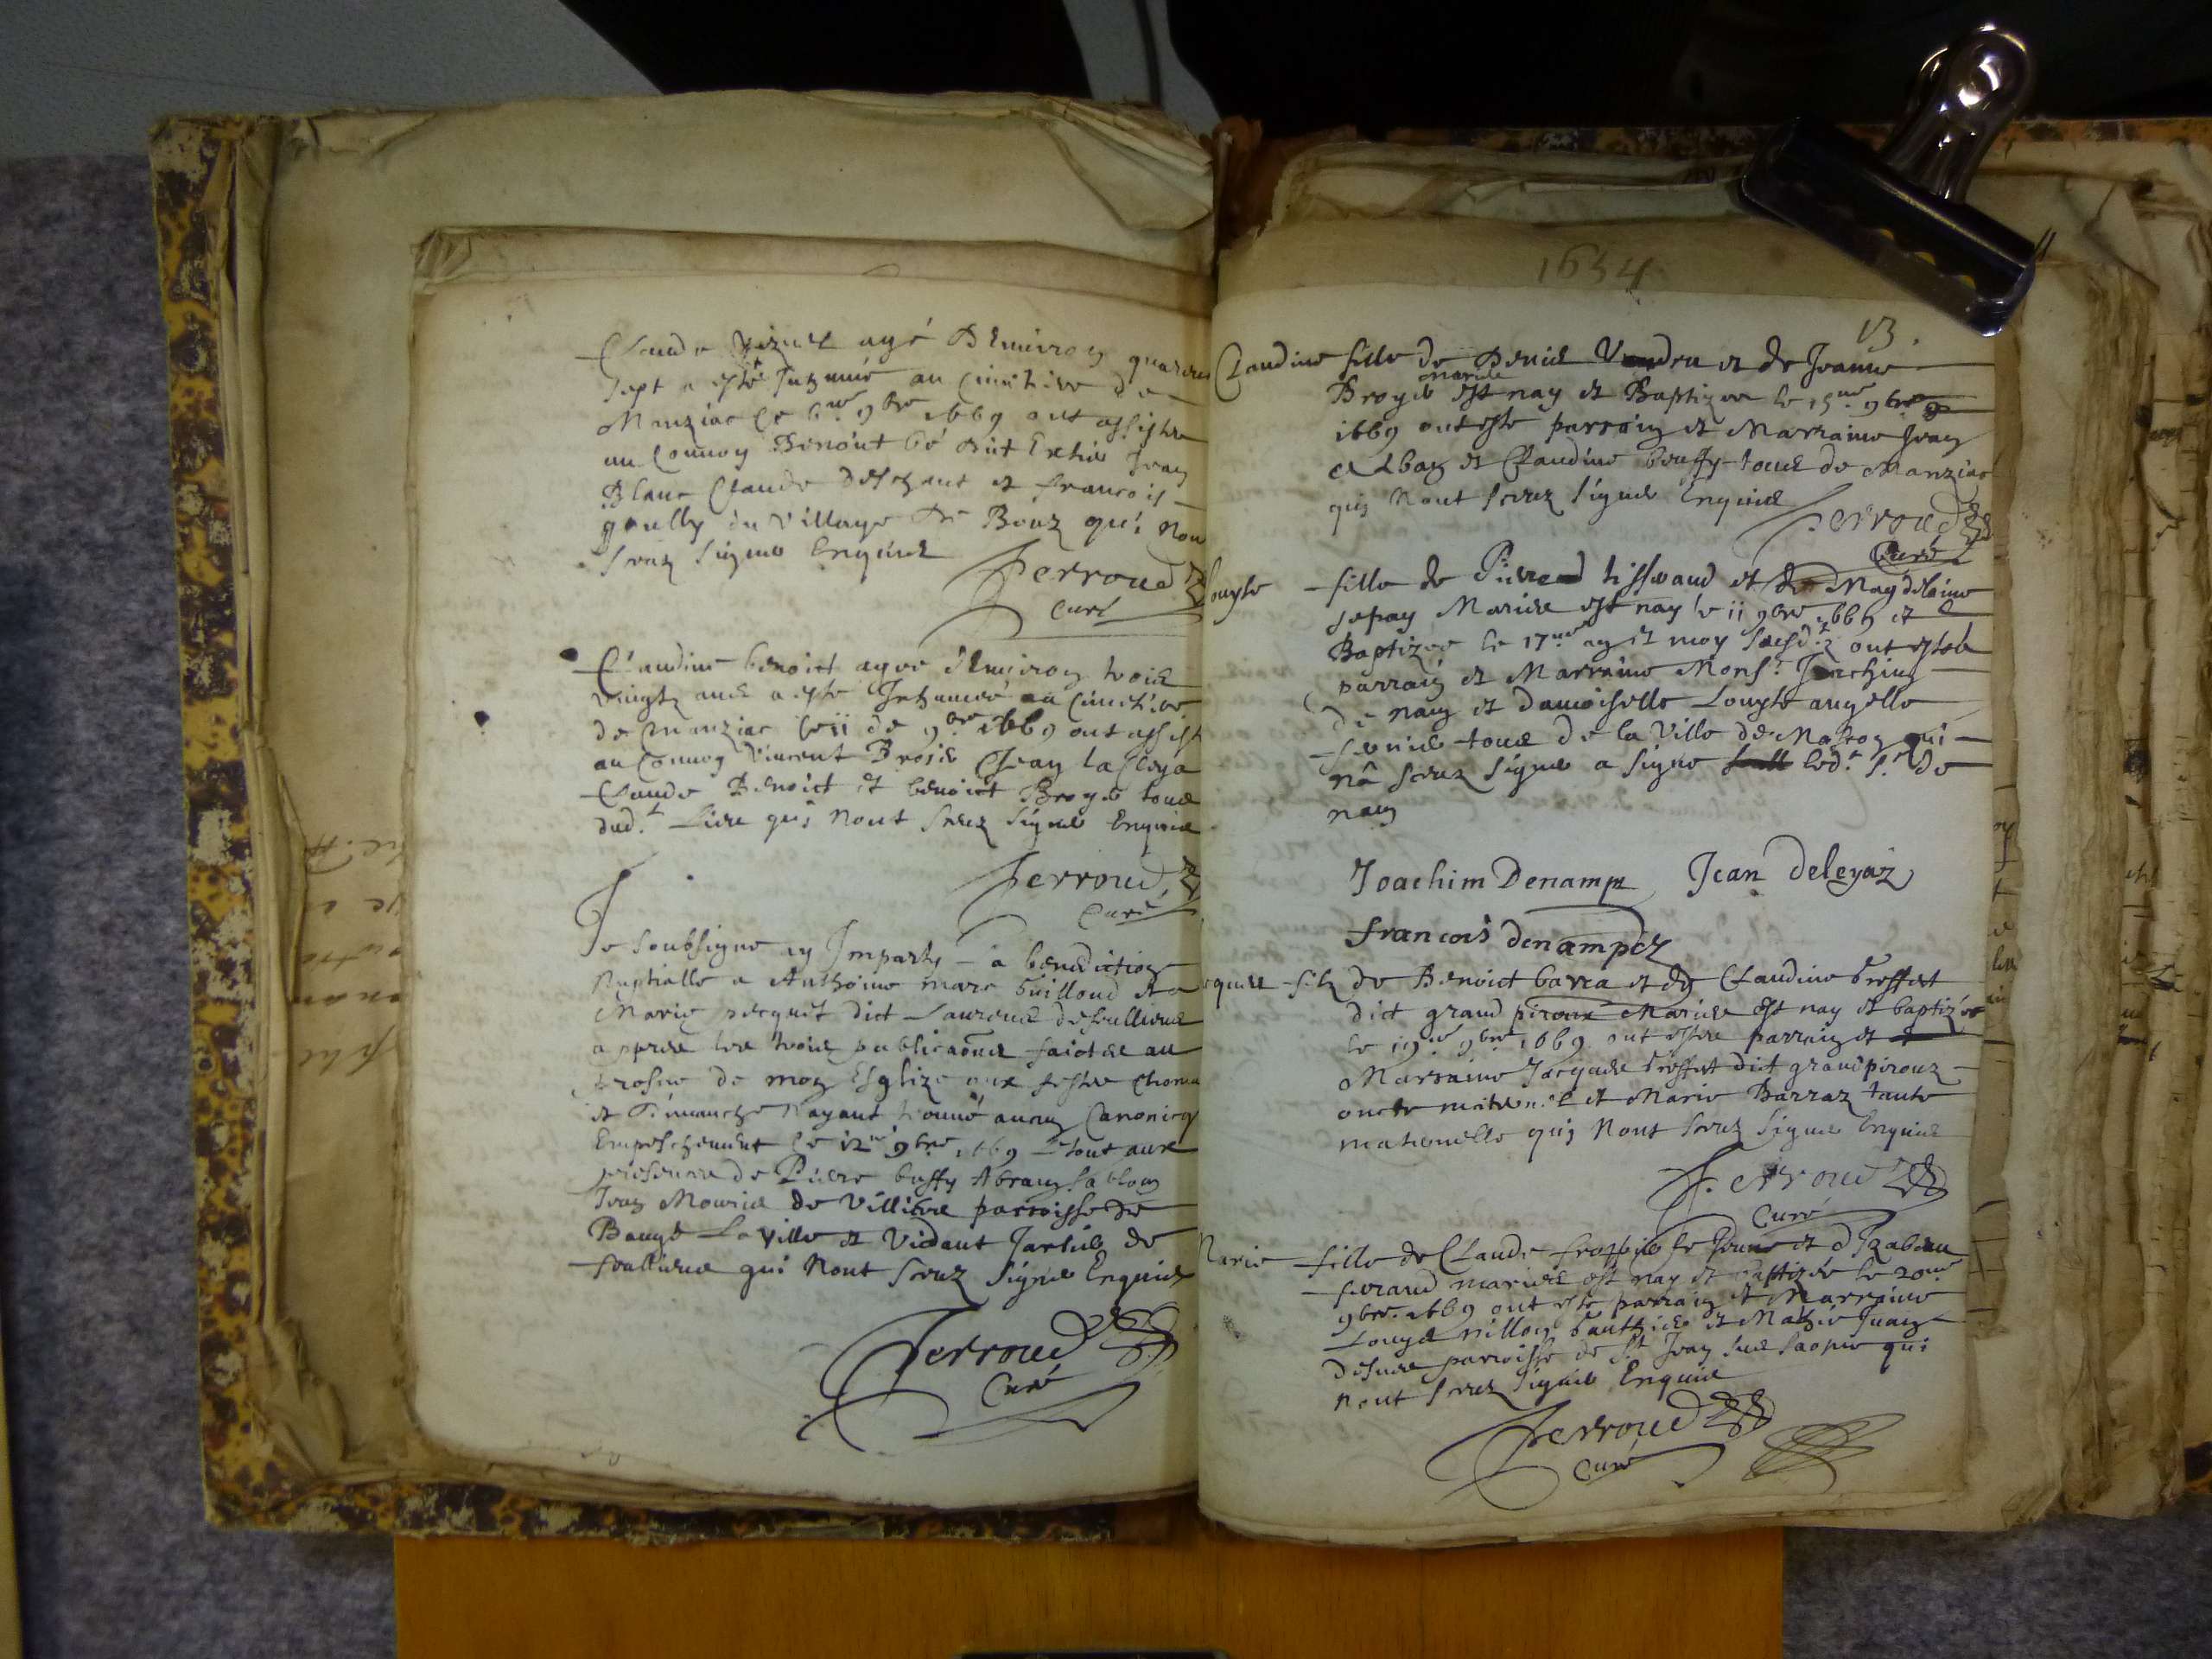 Claude agé Denviron quarente
sept a esté Inhumé au Cimetiere de
Manziac le 6me 9bre 1669 ont assiste
au Convoy Benoict dict Jean
Blanc Claude deschant et francois
goully du village de Bouz qui nont
sceuz signer Enquis
Perroud
Curé
Claudine benoict agee d'Environ trois
vingtz ans a este Inhumée au Cimetiere
de manziac le 11 de 9bre 1669 ont assist
au Convoy Vincent Broies Jean la Cleya
Claude Benoict et benoict Broyes tous
dud.t Lieu qui nont sceuz signer Enquis
Perroud
Curé
Je soubsigne ay Imparty la benediction
Nuptialle a Anthoine marc Guilloud et a
Marie pecquet dict Laurens de feulliens
appres les trois publicaons faictes au
prosne de mon Esglize aux festes
et dimanche nayant trouvé aucun Canonicq
Empeschement le 12me 9bre 1669 Le tout aux
presence de Pierre buffy Abram Sablon
Jean Mouries de Villieres parroisse de
Baugé La ville et Vidant Jarlies de
feulliens qui nont sceuz signer Enquis
Perroud
Curé
1654
13.
Claudine fille de Denis Vendru et de Jeanne
mariés
Broyes est nay et Baptizee le 15me 9bre
1669 ont este parrain et Marraine Jean
Alban et Claudine buffy tous de Manziac
qui nont sceuz signer Enquis
Perroud
Curé
Louyse fille de Pierre tisserand et de Magdelaine
pepay Mariés est nay le 11 9bre 1669 et
Baptizee le 17me an et moy susd.tz ont esté
parrain et Marraine Mons.r Joachin
de nam et damoiselle Louyse angelle
tous de la Ville de Mascon qui
na sceuz signer a signe led.t s.r de
nam
Joachim Denamps Jean deleyaz
francois denampz
Jacques filz de Benoict barra et de Claudine
dict grand piroux Mariés est nay et baptizée
le 19me 9bre 1669 ont estes parrain et
Marraine Jacques dict grand piroux
oncle maternel et Marie Barraz tante
maternelle qui nont sceuz signer Enquis
Perroud
Curé
Marie fille de Claude le Jeune et d'Izabeau
ferand mariés est nay et baptizée le 20me
9bre 1669 ont este parrain et Marraine
Louys nillon et
parroisse de St Jean sus Saonne qui
nont sceuz signer Enquis
Perroud
Curé